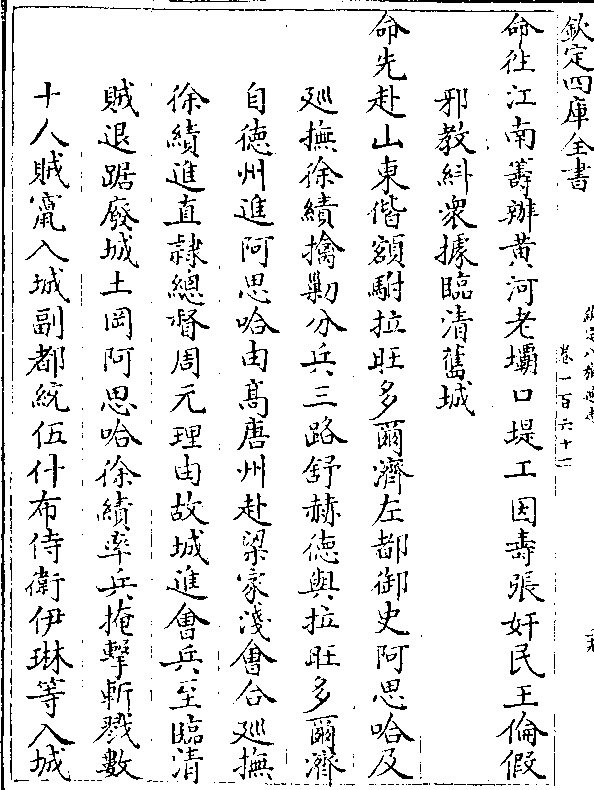 欽定四庫全書
卷一百六十一
命往江南籌辦黃河老壩口堤工因壽張奸民王倫假
邪教糾衆據臨清舊城
命先赴山東偕額駙拉旺多爾濟左都御史阿思哈及
廵撫徐績擒勦分兵三路舒赫德與拉旺多爾濟
自德州進阿思哈由髙唐州赴梁家淺會合廵撫
徐績進直隷總督周元理由故城進會兵至臨清
賊退踞廢城土岡阿思哈徐績率兵掩擊斬戮數
十人賊竄入城副都統伍什布侍衛伊琳等入城